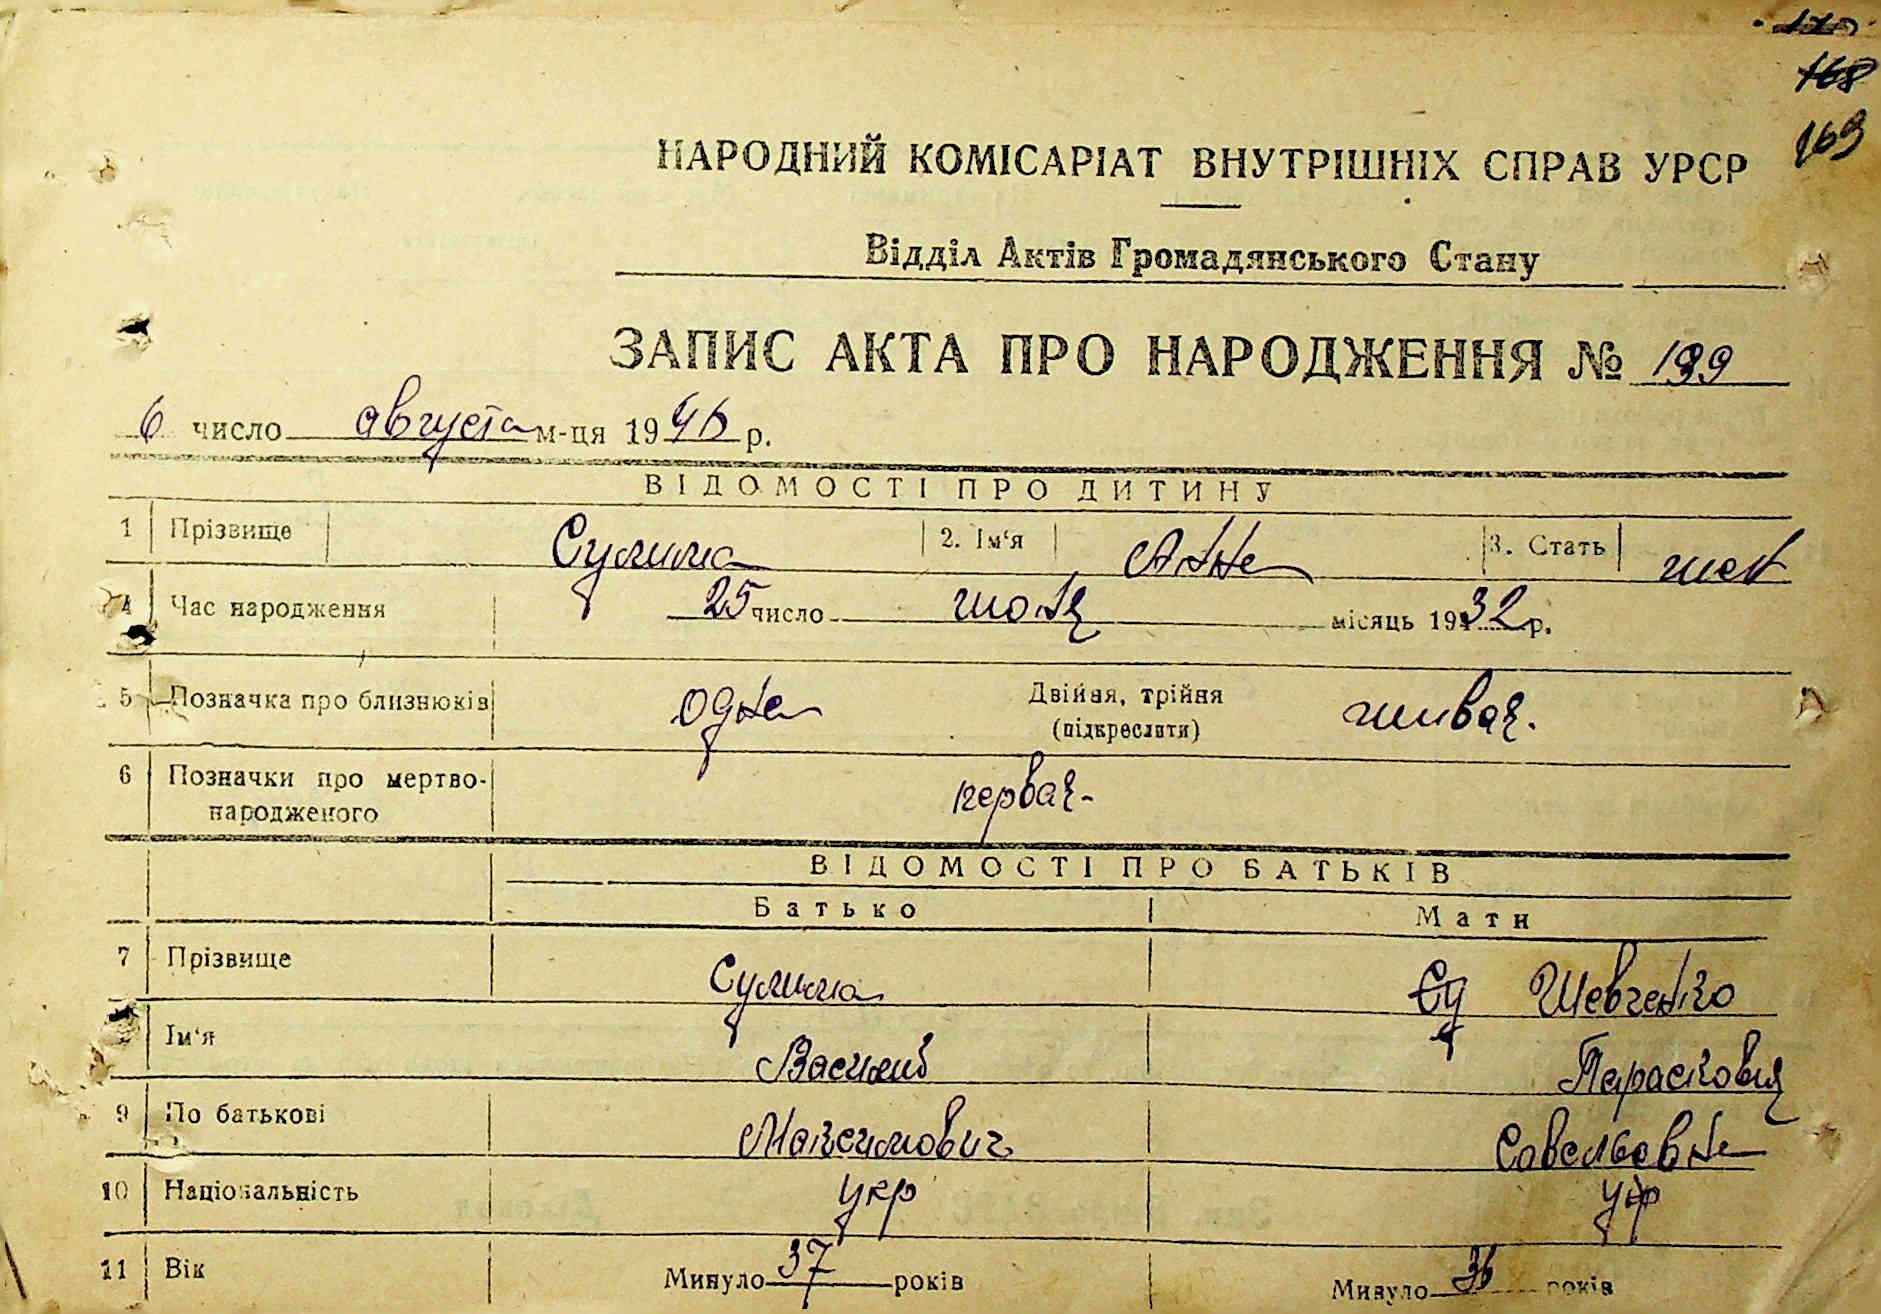 168
169
НАРОДНИЙ КОМІСАРІАТ ВНУТРІШНІХ СПРАВ УРСР
Відділ Актів Громадянського Стану
ЗАПИС АКТА ПРО НАРОДЖЕННЯ № 199
6 число августа м-ця 1946 р.
ВІДОМОСТІ ПРО ДИТИНУ
1 Прізвище Сулима 2. Ім'я Анна 3. Стать жен
4 Час народження 25 число июля місяць 1932 р.
5 Позначка про близнюків одна Двійня, трійня (підкреслити) живая.
6 Позначки про мертво-
народженого первая-
ВІДОМОСТІ ПРО БАТЬКІВ
Батько Мати
7 Прізвище Сулима Су Шевченко
Ім'я Василий Парасковия
9 По батькові Максимович Савельевна
10 Національність укр укр
11 Вік Минуло 37 років Минуло 36 років